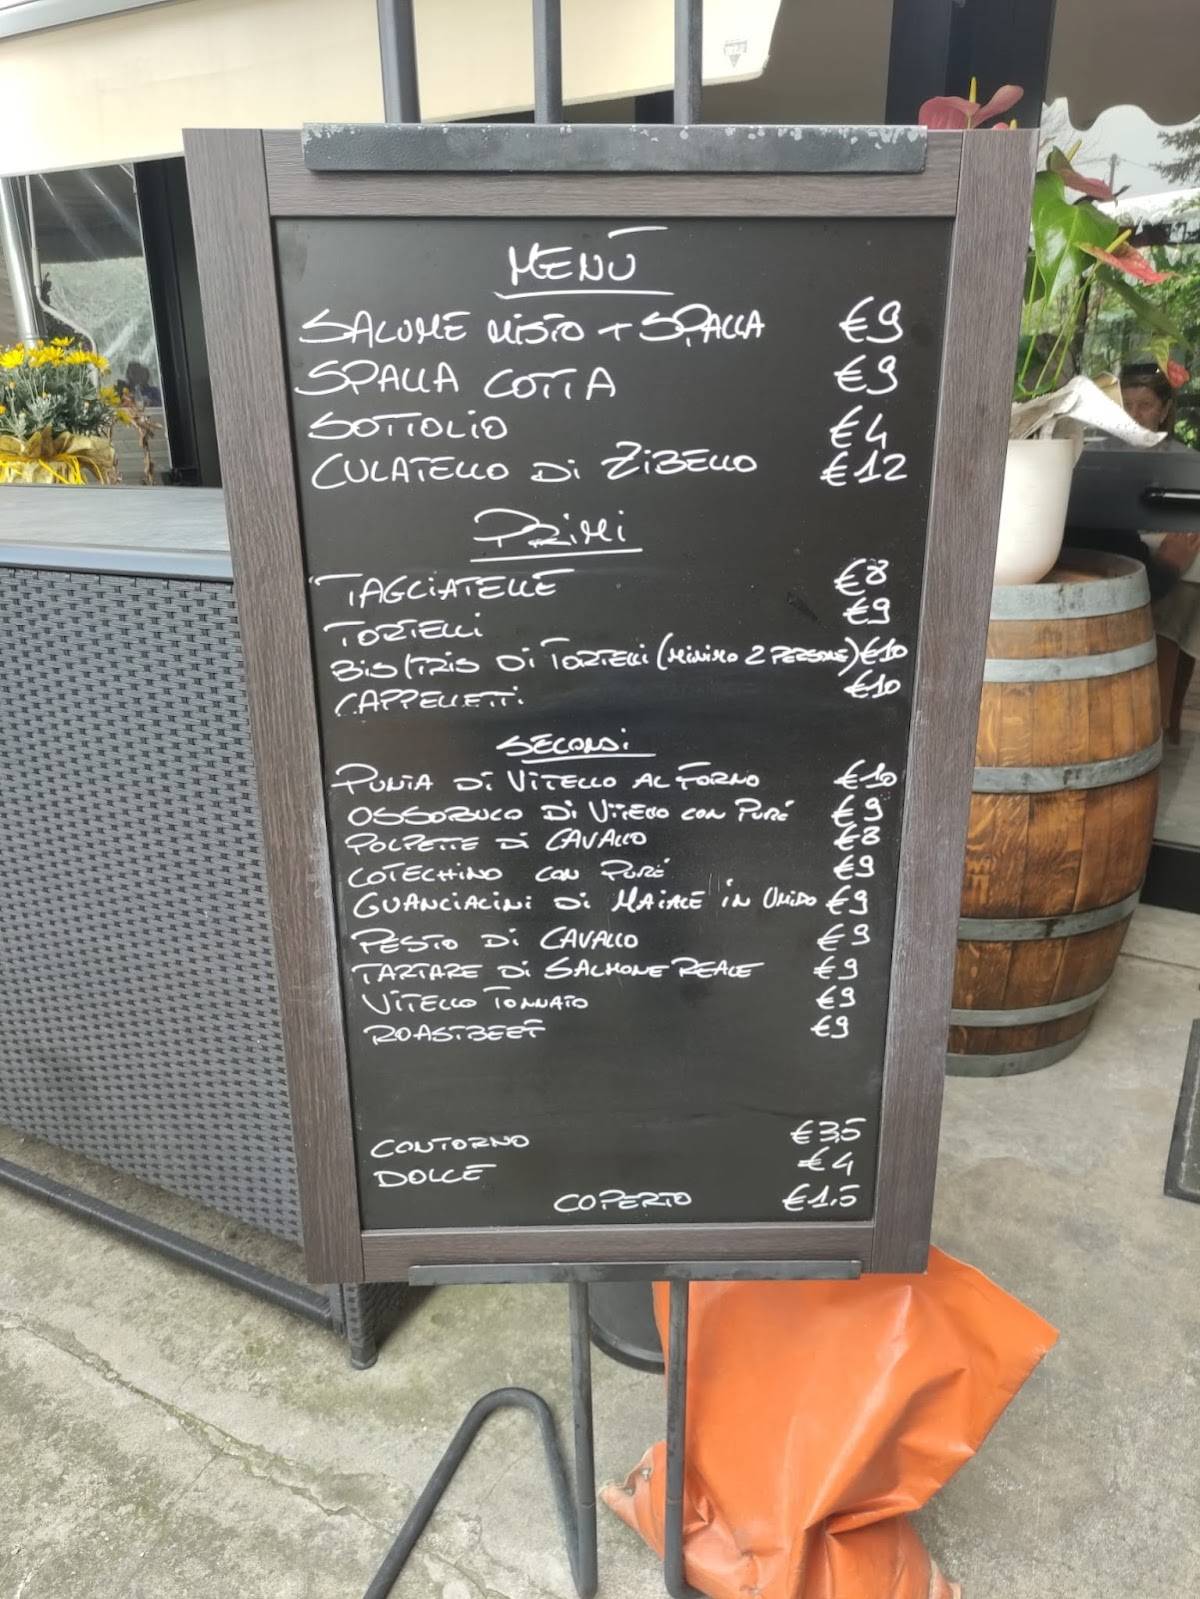 MENÙ
SALUME MISTO + SPALLA €9
SPALLA COTTA €9
SOTTOLIO €4
CULATELLO DI ZIBELLO €12
PRIMI
TAGLIATELLE €8
TORTELLI €9
BIS/TRIS DI TORTELLI (MINIMO 2 PERSONE) €10
CAPPELLETTI €10
SECONDI
PUNTA DI VITELLO AL FORNO €10
OSSOBUCO DI VITELLO CON PURÉ €9
POLPETTE DI CAVALLO €8
COTECHINO CON PURÉ €9
GUANCIALINI DI MAIALE IN UMIDO €9
PESTO DI CAVALLO €9
TARTARE DI SALMONE REALE €9
VITELLO TONNATO €9
ROASTBEEF €9
CONTORNO €3,5
DOLCE €4
COPERTO €1,5